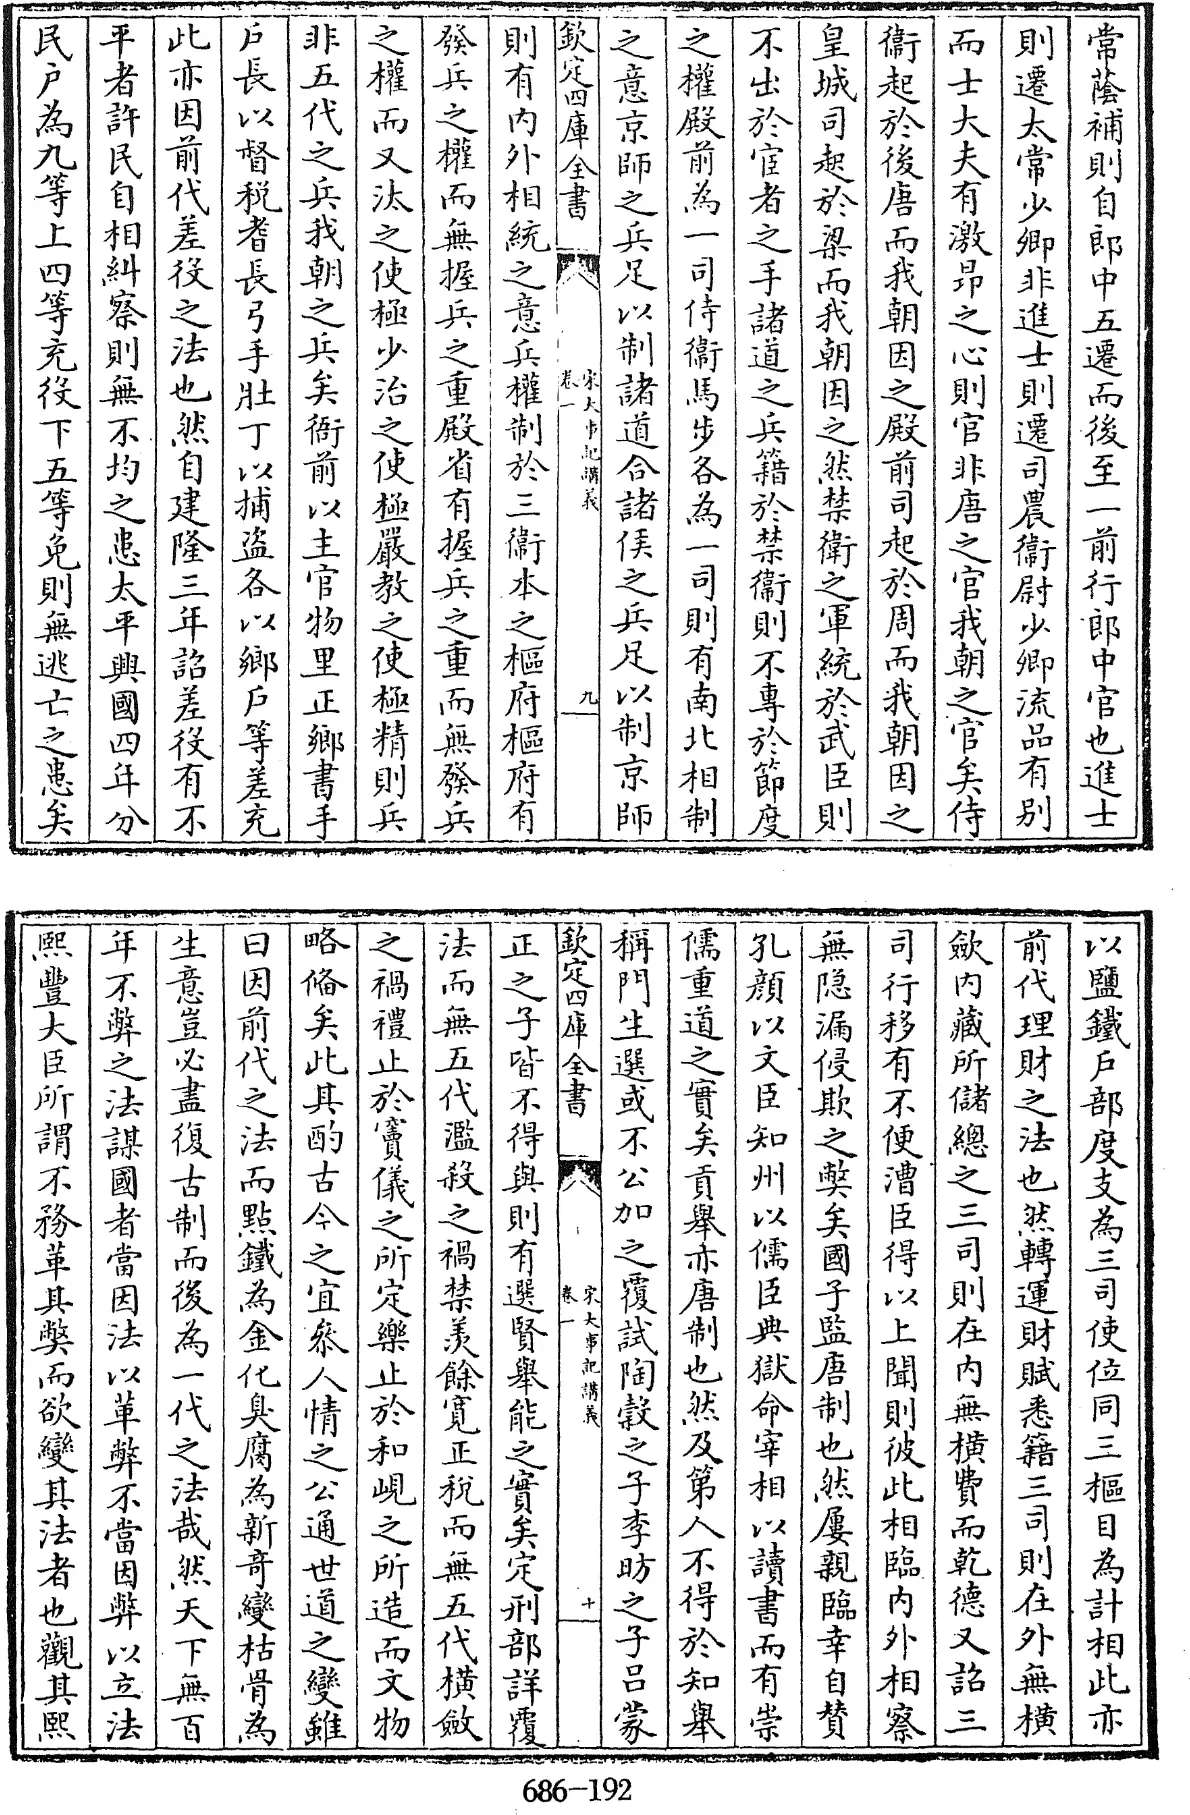 常蔭補則自郎中五遷而後至一前行郎中官也進士
則遷太常少卿非進士則遷司農衞尉少卿流品有别
而士大夫有激昻之心則官非唐之官我朝之官矣侍
衞起於後唐而我朝因之殿前司起於周而我朝因之
皇城司起於梁而我朝因之然禁衛之軍統於武臣則
不出於宦者之手諸道之兵籍於禁衞則不專於節度
之權殿前為一司侍衞馬步各為一司則有南北相制
之意京師之兵足以制諸道合諸侯之兵足以制京師
欽定四庫全書
宋大事記講義
卷一
九
則有内外相統之意兵權制於三衞本之樞府樞府有
發兵之權而無握兵之重殿省有握兵之重而無發兵
之權而又汰之使極少治之使極嚴教之使極精則兵
非五代之兵我朝之兵矣衙前以主官物里正鄉書手
戶長以督稅耆長弓手壯丁以捕盜各以鄉戶等差充
此亦因前代差役之法也然自建隆三年詔差役有不
平者許民自相糾察則無不均之患太平興國四年分
民户為九等上四等充役下五等免則無逃亡之患矣
以鹽鐵戶部度支為三司使位同三樞目為計相此亦
前代理財之法也然轉運財賦悉籍三司則在外無橫
斂内藏所儲總之三司則在内無橫費而乾德又詔三
司行移有不便漕臣得以上聞則彼此相臨内外相察
無隐漏侵欺之弊矣國子監唐制也然屢親臨幸自贊
孔顔以文臣知州以儒臣典獄命宰相以讀書而有崇
儒重道之實矣貢舉亦唐制也然及第人不得於知舉
稱門生選或不公加之覆試陶穀之子李昉之子呂蒙
欽定四庫全書
宋大事記講義
卷一
十
正之子皆不得與則有選賢舉能之實矣定刑部詳覆
法而無五代濫殺之禍禁羡餘寬正稅而無五代橫斂
之禍禮止於竇儀之所定樂止於和峴之所造而文物
略備矣此其酌古今之宜叅人情之公通世道之變雖
曰因前代之法而點鐵為金化臭腐為新竒變枯骨為
生意豈必盡復古制而後為一代之法哉然天下無百
年不弊之法謀國者當因法以革弊不當因弊以立法
熙豐大臣所謂不務革其弊而欲變其法者也觀其熙
686-192